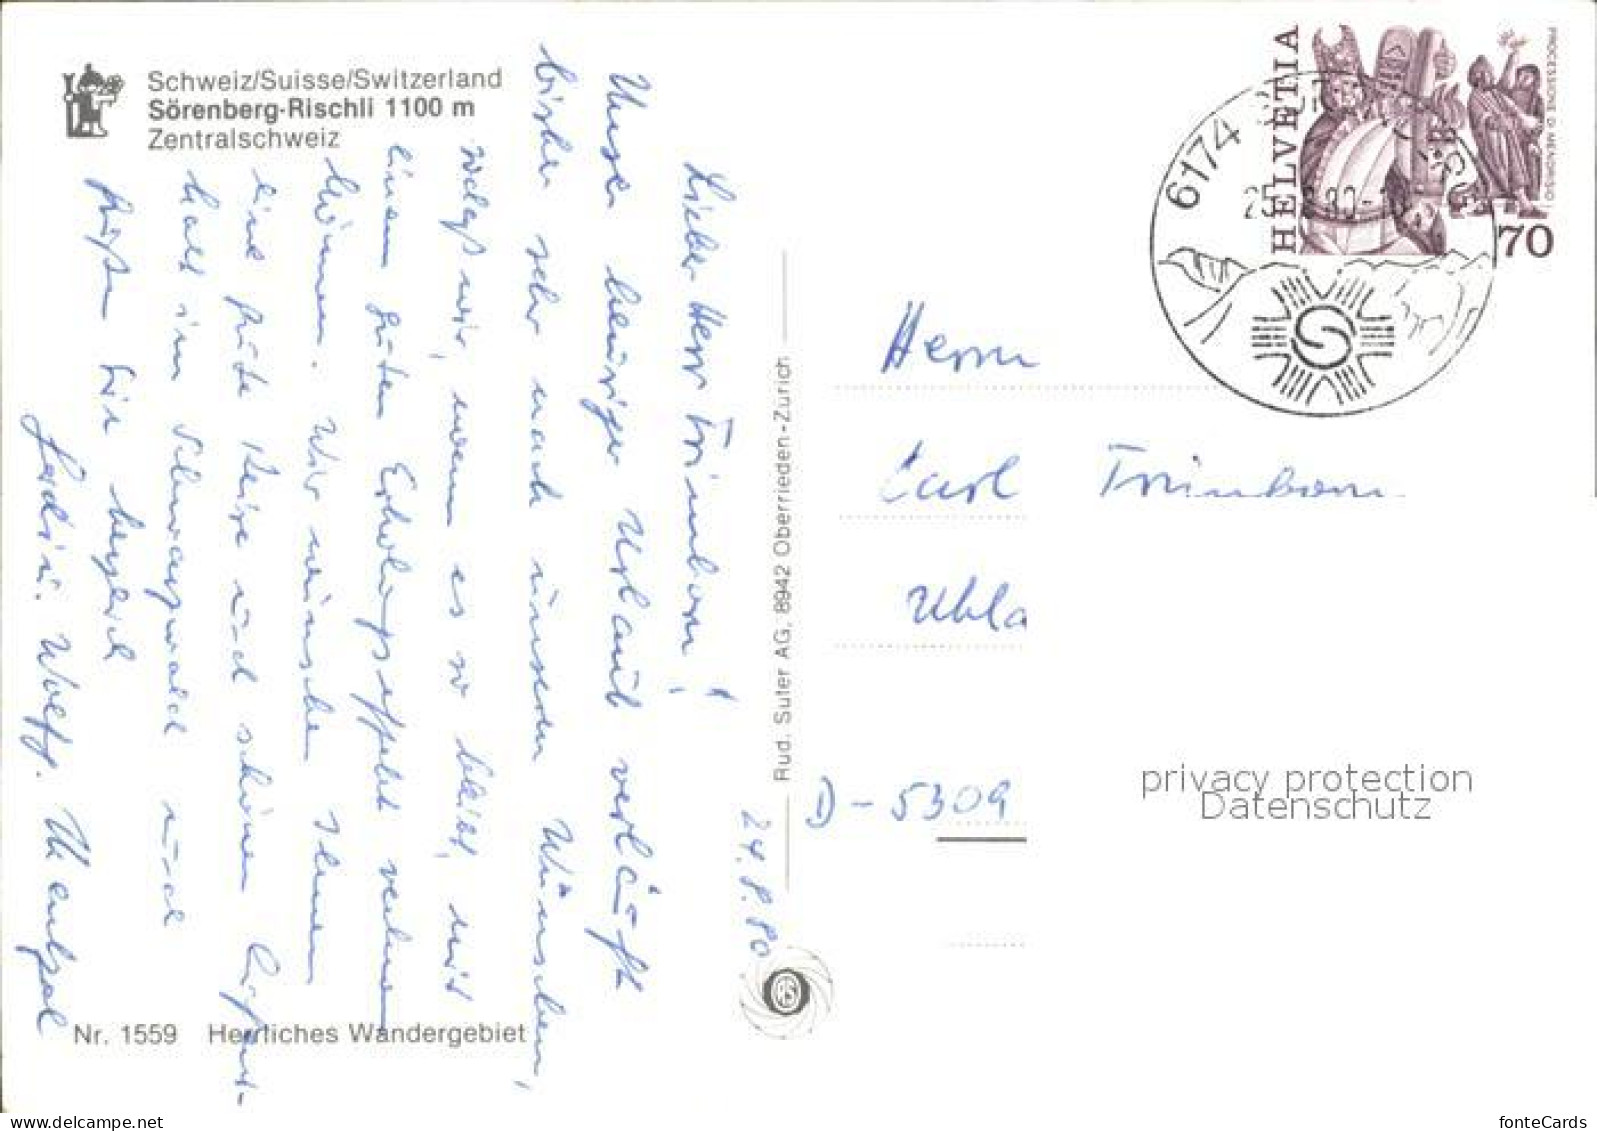 Schweiz/Suisse/Switzerland
Sörenberg-Rischli 1100 m
Zentralschweiz
24.8.80
Lieber Herr Trimborn!
Unser heuriger Urlaub verläuft
bisher sehr nach unseren Wünschen,
weshalb wir, wenn es so bleibt, mit
einem guten Erholungseffekt rechnen
können. Wir wünschen Ihnen
eine gute Reise und schönen Aufent-
halt im Schwarzwald und
grüßen Sie herzlich
Wolfg.
Nr. 1559 Herrliches Wandergebiet
Rud. Suter AG, 8942 Oberrieden-Zürich
HELVETIA
PROCESSIONE DI MENDRISIO
70
6174
Herrn
Carl Trimborn
Uhla
D-5309
privacy protection
Datenschutz
www.delcampe.net
fonteCards